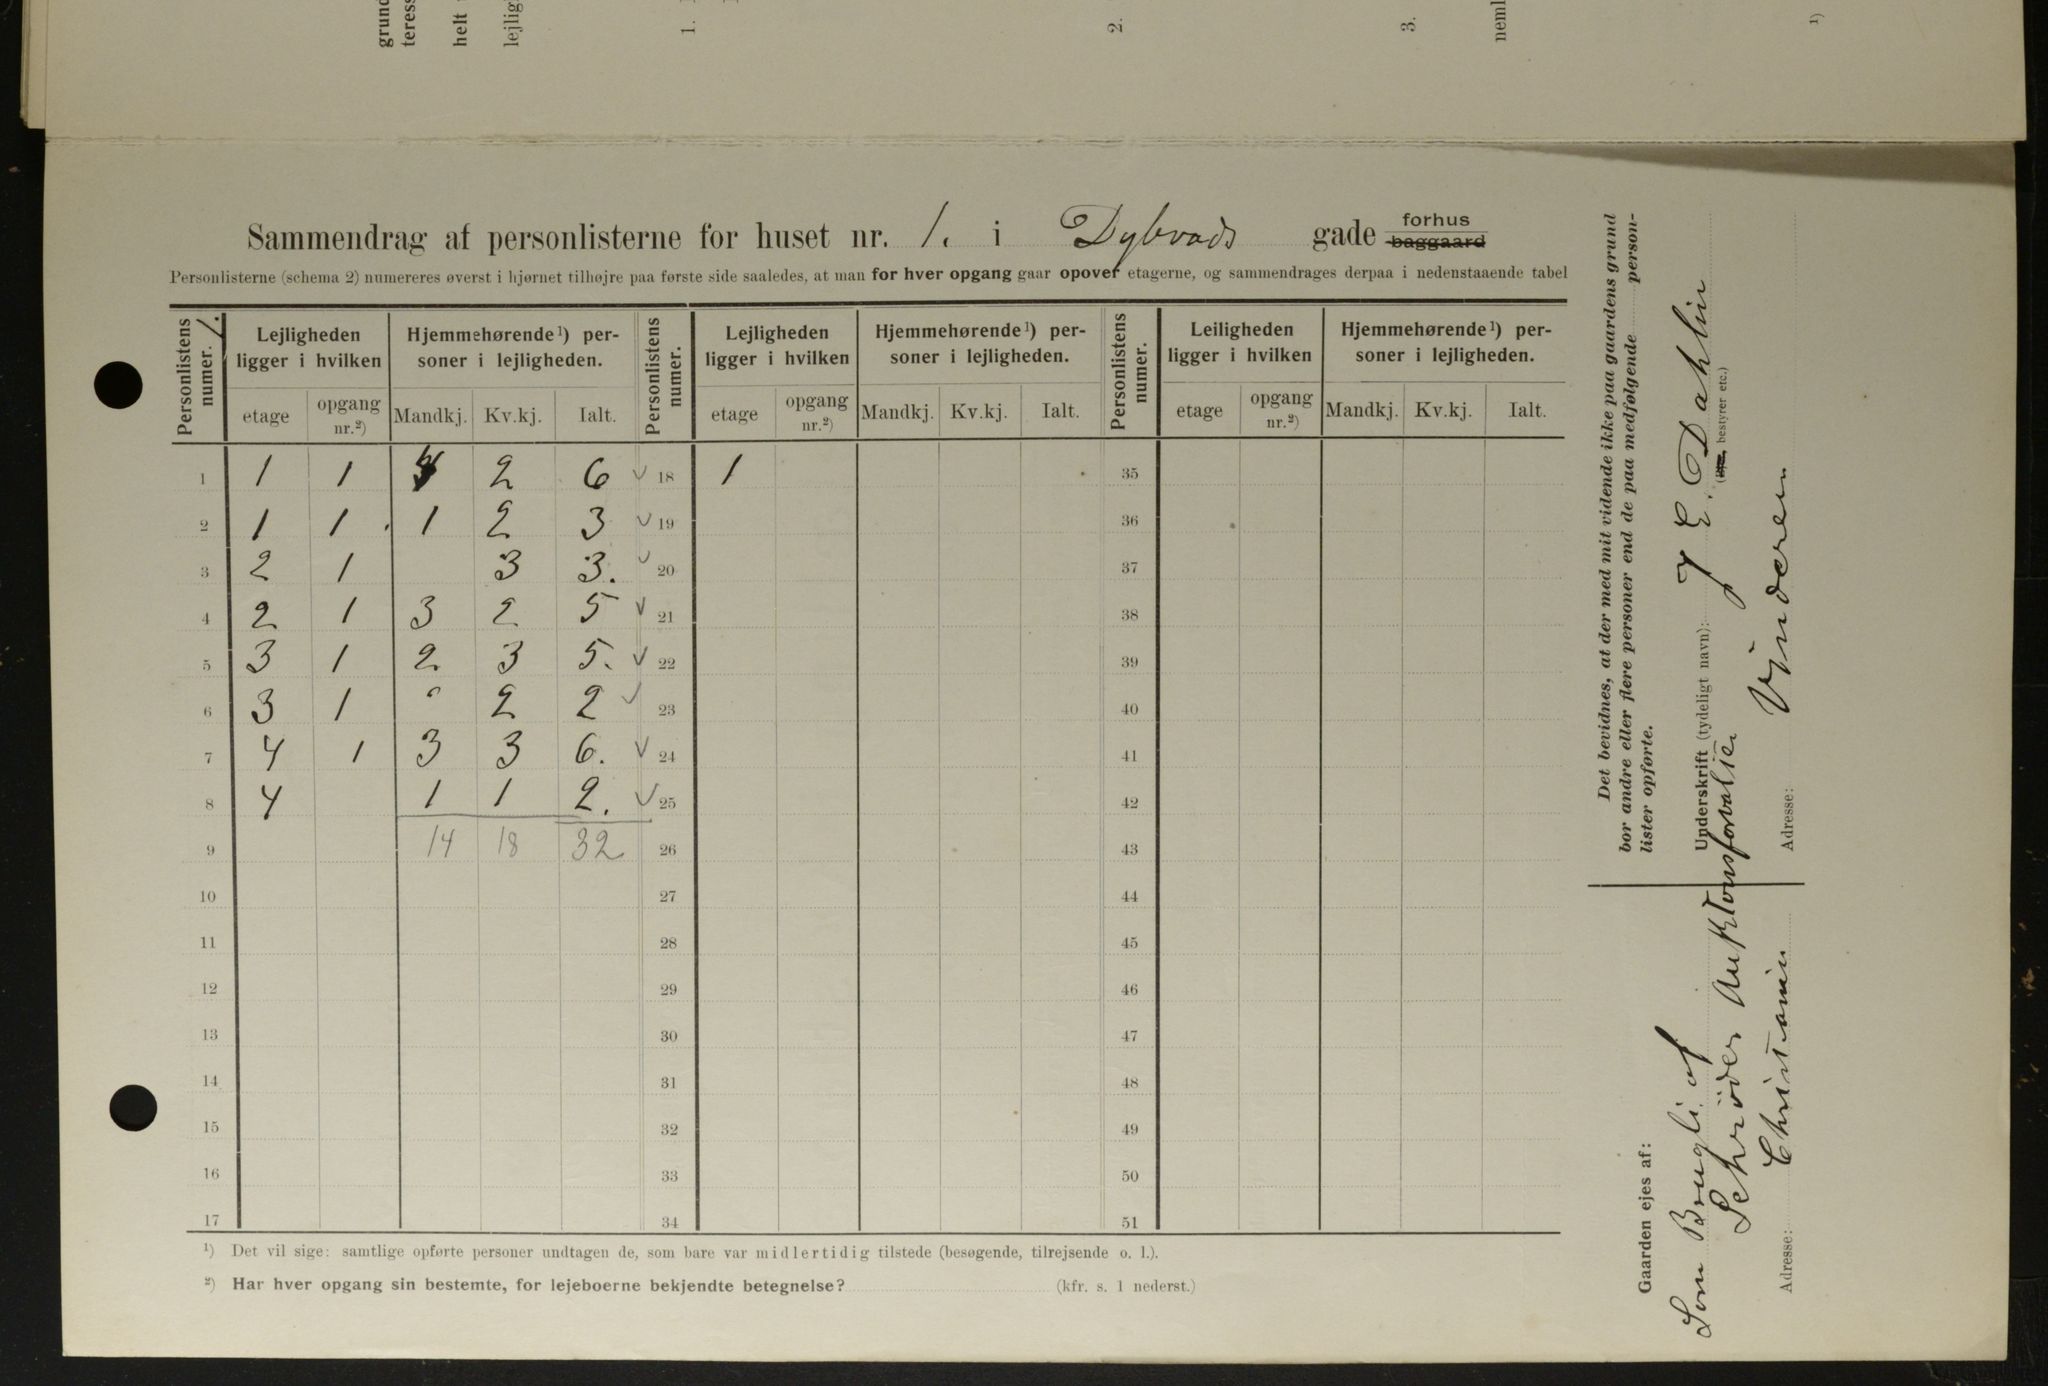 grund
teress
helt
lejlig
1.
2.
3.
neml
1)
Sammendrag af personlisterne for huset nr. 1. i Dybvads gade forhus baggaard
Personlisterne (schema 2) numereres øverst i hjørnet tilhøjre paa første side saaledes, at man for hver opgang gaar opover etagerne, og sammendrages derpaa i nedenstaaende tabel
Personlistens numer. 1. Lejligheden ligger i hvilken Hjemmehørende¹) personer i lejligheden. Personlistens numer. Lejligheden ligger i hvilken Hjemmehørende¹) personer i lejligheden. Personlistens numer. Leiligheden ligger i hvilken Hjemmehørende¹) personer i lejligheden.
etage opgang nr.²) Mandkj. Kv.kj. Ialt. etage opgang nr.²) Mandkj. Kv.kj. Ialt. etage opgang nr.²) Mandkj. Kv.kj. Ialt.
1 1 1 4 2 6 ✓ 18 1 35
2 1 1. 1 2 3 ✓ 19 36
3 2 1 3 3. ✓ 20 37
4 2 1 3 2 5 ✓ 21 38
5 3 1 2 3 5. ✓ 22 39
6 3 1 0 2 2 ✓ 23 40
7 4 1 3 3 6. ✓ 24 41
8 4 1 1 2. ✓ 25 42
9 14 18 32 26 43
10 27 44
11 28 45
12 29 46
13 30 47
14 31 48
15 32 49
16 33 50
17 34 51
¹) Det vil sige: samtlige opførte personer undtagen de, som bare var midlertidig tilstede (besøgende, tilrejsende o. l.).
²) Har hver opgang sin bestemte, for lejeboerne bekjendte betegnelse? (kfr. s. 1 nederst.)
Det bevidnes, at der med mit vidende ikke paa gaardens grund
bor andre eller flere personer end de paa medfølgende person-
lister opførte.
Underskrift (tydeligt navn): J E. Dahlin
bestyrer etc.)
Adresse: Vinderen
Gaarden ejes af:
Schröder Auktionsforvalter
Adresse: Christiania